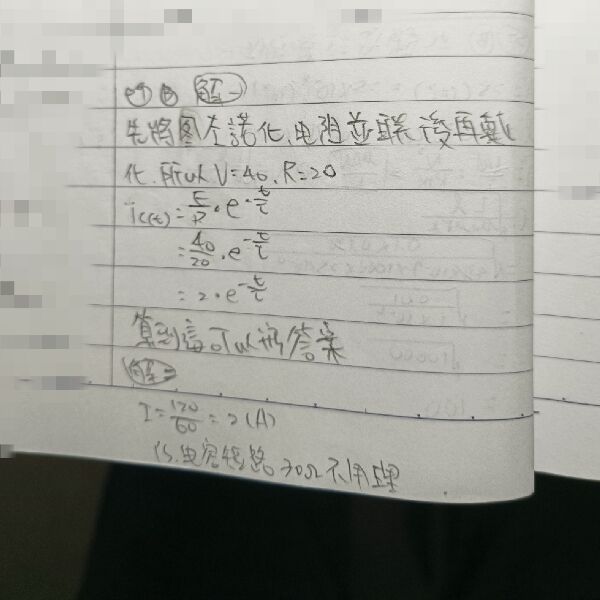 ⑦ⓑ 解一
先將圖左諾化,電阻並聯後再戴
化.所以V=40.R=20
ic(t)=E/R·e-t/τ
=40/20·e-t/τ
=2·e-t/τ
算到這可以猜答案
解二
I=120/60=2(A)
(s.電容短路 30Ω不用理